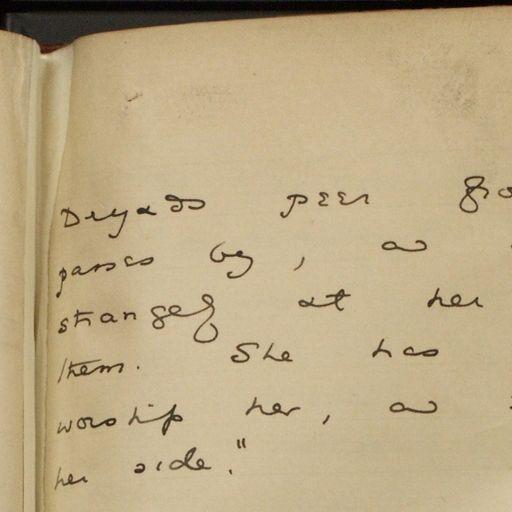 Dryads peer fro
passes by, as
strangely at her
them. She has
worship her, as
her side."